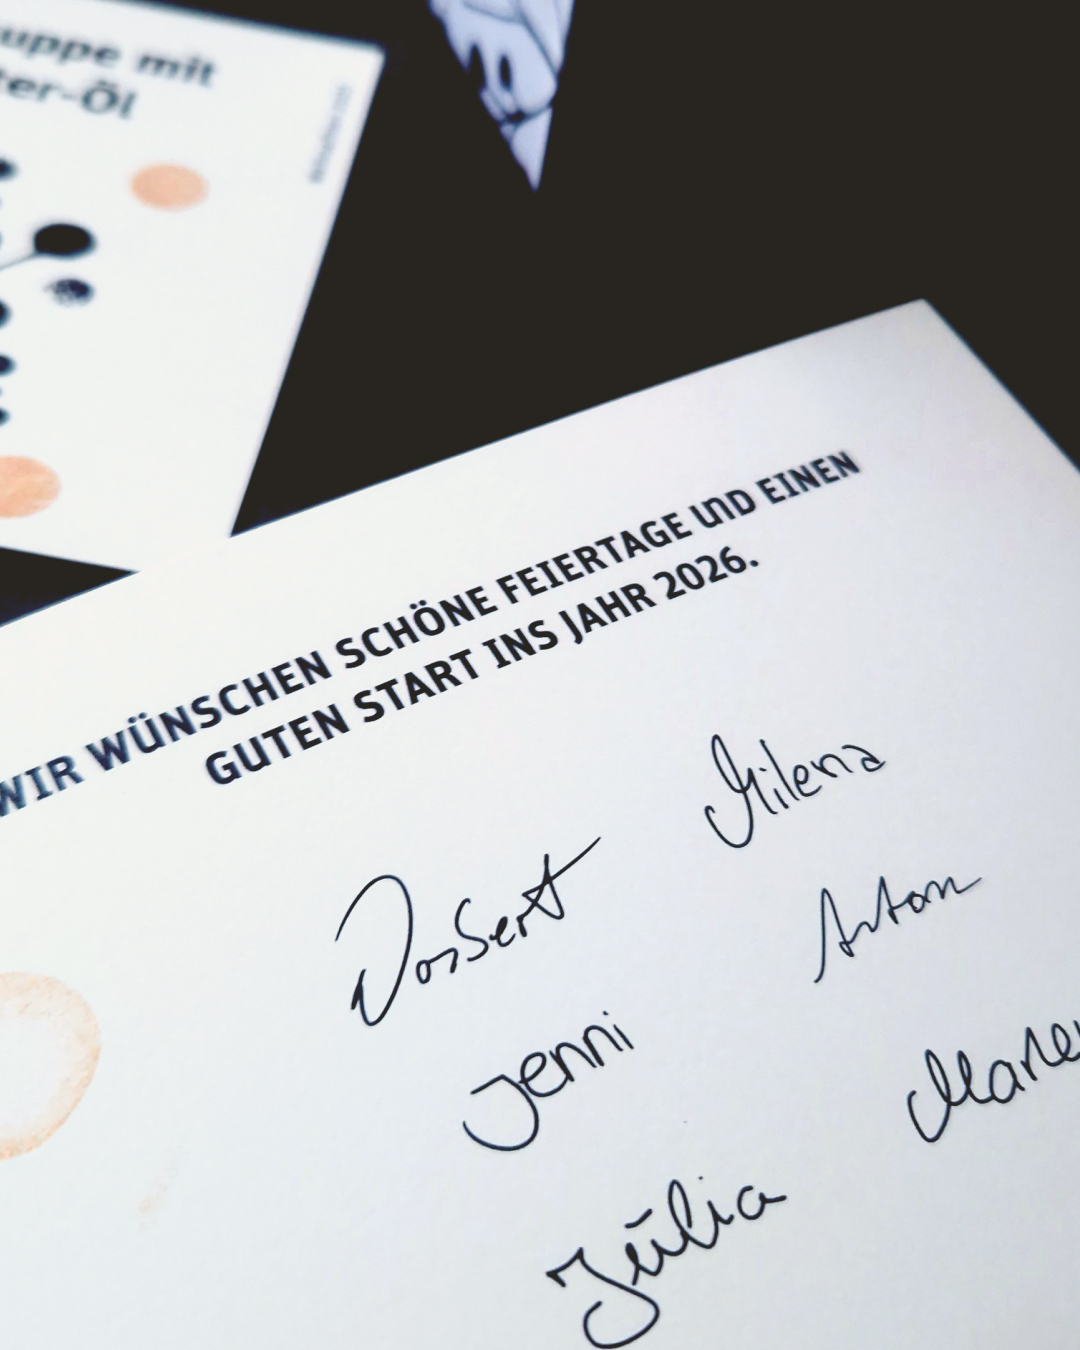 uppe mit
ter-Öl
WIR WÜNSCHEN SCHÖNE FEIERTAGE UND EINEN
GUTEN START INS JAHR 2026.
Milena
Norbert
Anton
Jenni
Marle
Julia